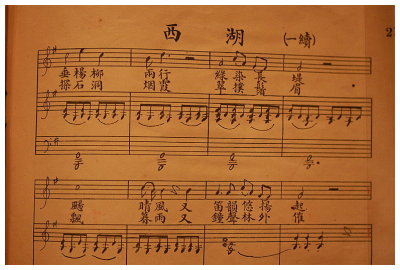 西湖 (一續)
2
垂楊柳 兩行 綠染長堤
探石洞 烟霞 翠撲鬚眉
颺 晴風又 笛韻悠揚起
飄 暮雨又 鐘聲林外催